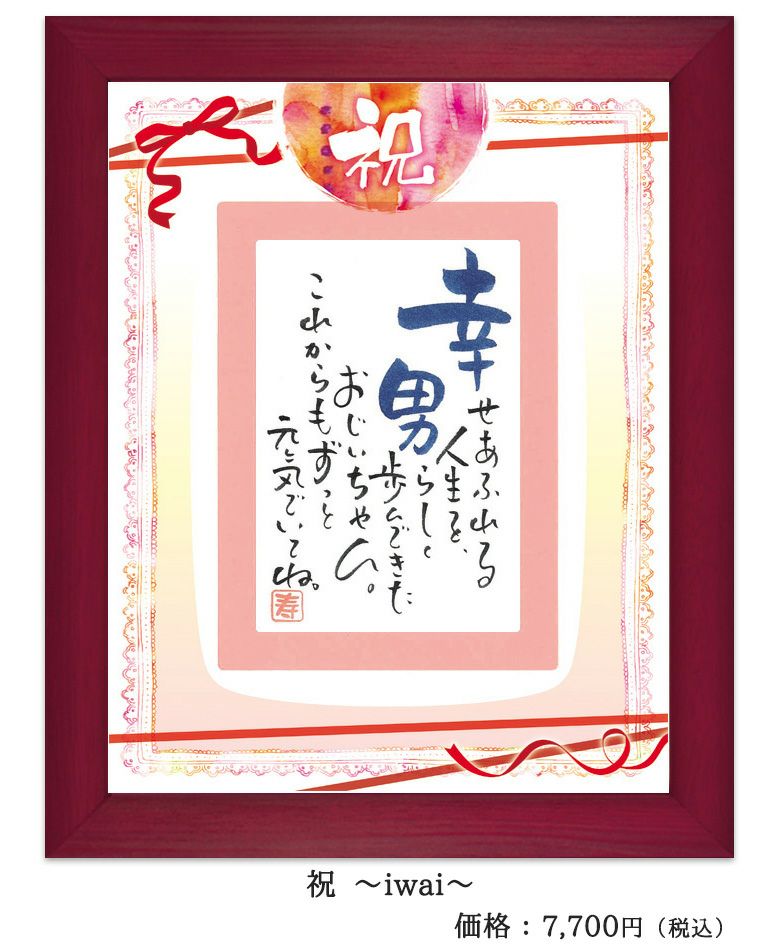 祝
幸せあふれる
人生を、
男らしく
歩んできた
おじいちゃん。
これからもずっと
元気でいてね。
寿
祝 〜iwai〜
価格：7,700円（税込）